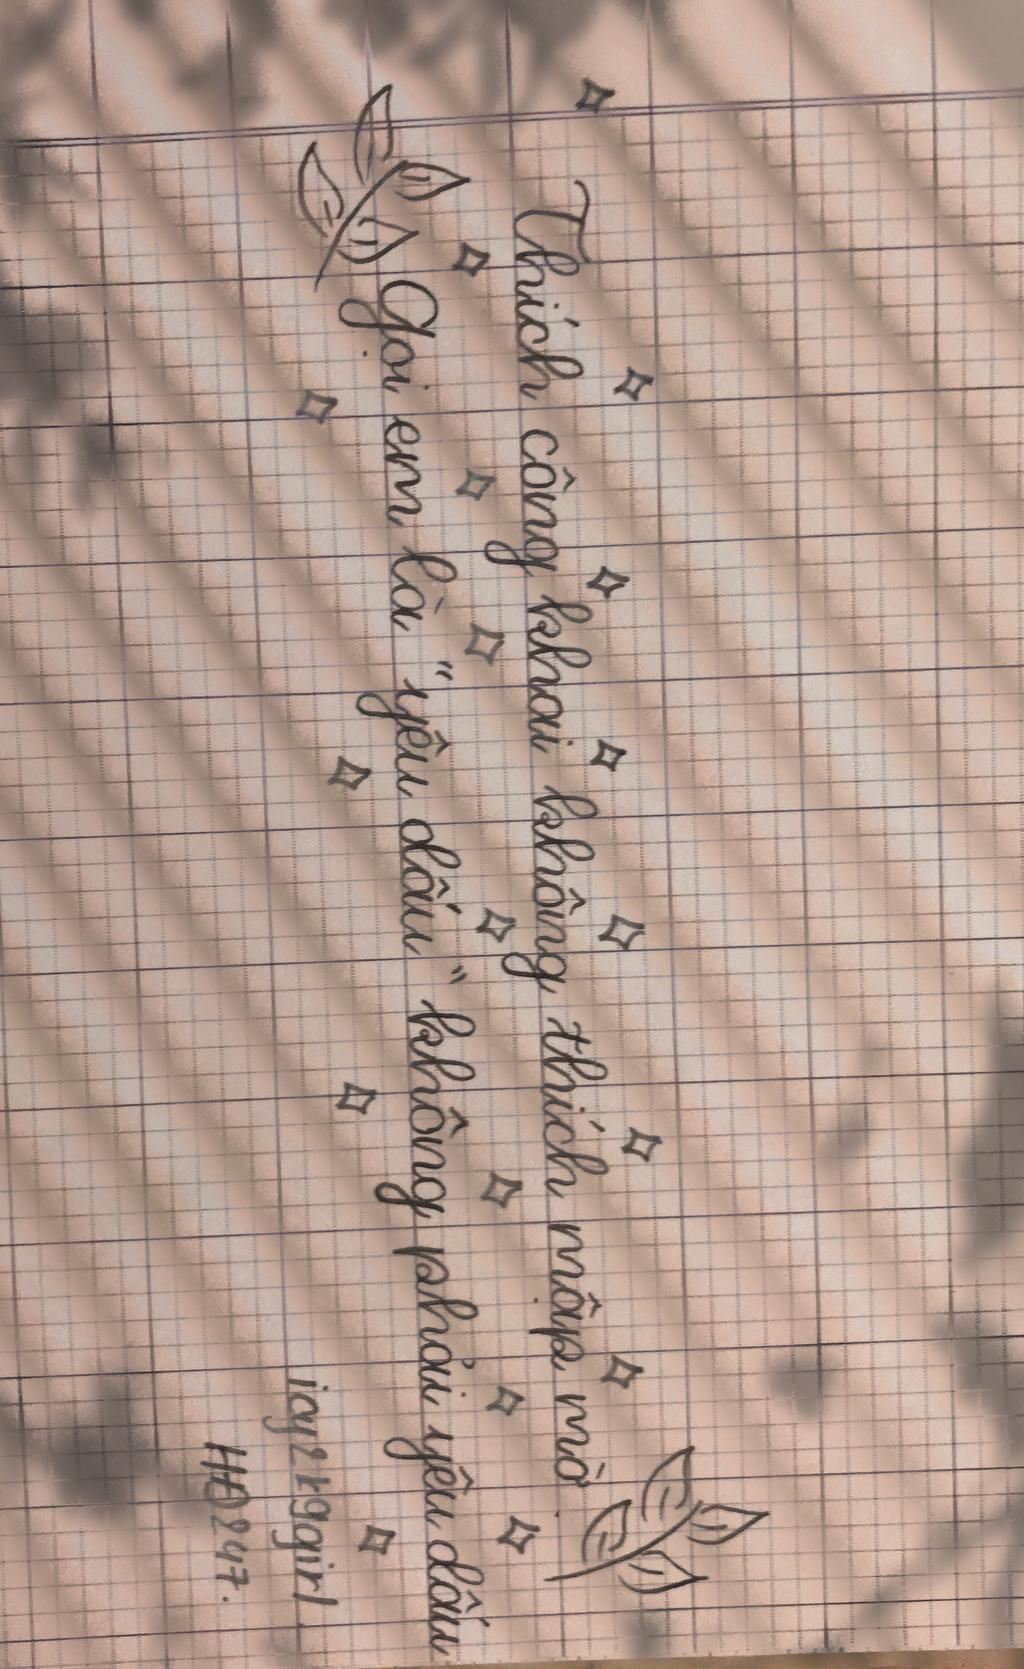 Thích công khai không thích mập mờ
Gọi em là "yêu dấu" không phải yêu dấu
icy2kggirl
HĐ247.